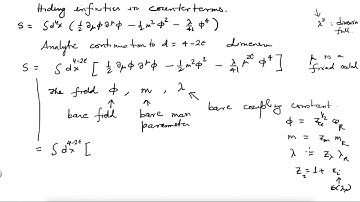 Hiding infinities in counterterms.
S = ∫d⁴x ( ½ ∂μφ ∂^μφ - ½ m²φ² - λ/4! φ⁴ )
Analytic continuation to d = 4-2ε dimension
S = ∫dx^{4-2ε} [ ½ ∂μφ ∂^μφ - ½ m²φ² - λ/4! μ^{2ε} φ⁴ ]
μ is a
the field φ, m, λ
bare field bare mass parameter
bare coupling constant.
φ = φ_R
m = Z_m m_R
λ = Z_λ λ_R
Z_i = 1 + 
= ∫dx^{4-2ε} [